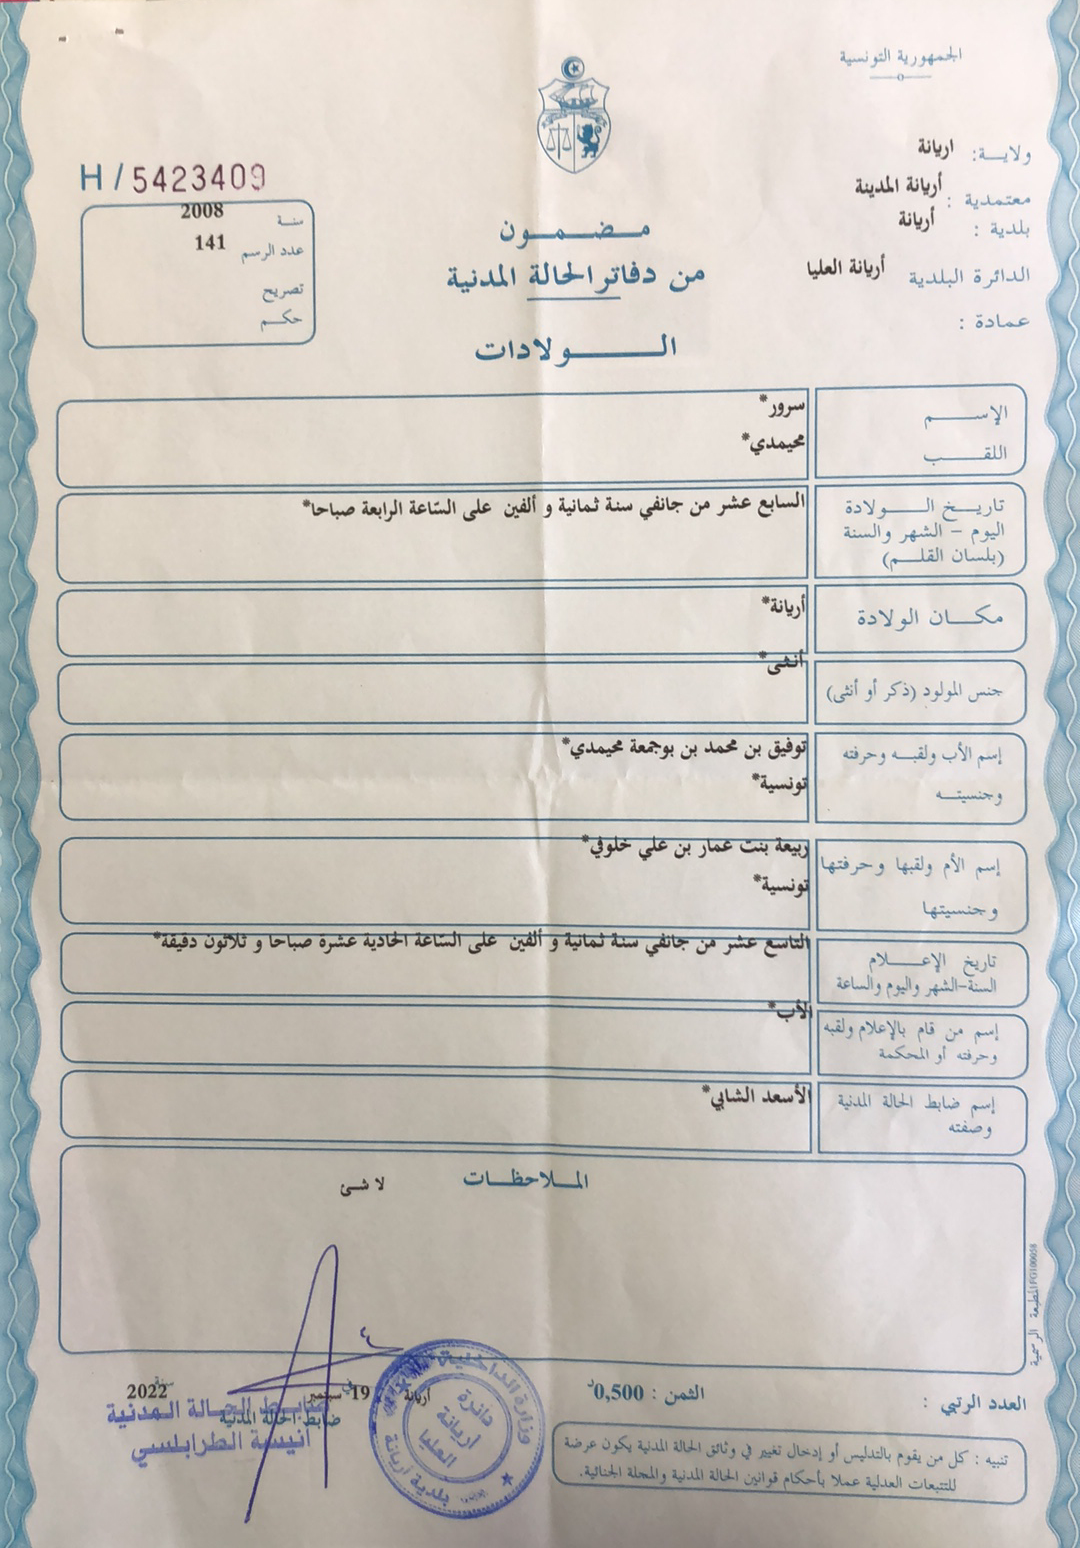 الجمهورية التونسية
ولايـــة: اريانة
معتمدية : أريانة المدينة
بلدية : أريانة
الدائرة البلدية أريانة العليا
عمادة :
H/5423409
سنـة 2008
عدد الرسم 141
تصريح
حكـم
مـــضـــمـــون
من دفاتر الحالة المدنية
الـــــولادات
الإســـم سرور*
اللقـــب محيمدي*
تاريـــخ الـــــولادة
اليوم - الشهر والسنة
(بلسان القلـــم)
السابع عشر من جانفي سنة ثمانية و ألفين على السّاعة الرابعة صباحا*
مكـــان الولادة أريانة*
جنس المولود (ذكر أو أنثى) أنثى*
إسم الأب ولقبـــه وحرفته توفيق بن محمد بن بوجمعة محيمدي*
وجنسيتـــه تونسية*
إسم الأم ولقبها وحرفتها ربيعة بنت عمار بن علي خلوفي*
وجنسيتها تونسية*
تاريخ الإعـــــلام
السنة-الشهر واليوم والساعة
التاسع عشر من جانفي سنة ثمانية و ألفين على السّاعة الحادية عشرة صباحا و ثلاثون دقيقة*
إسم من قام بالإعلام ولقبه
وحرفته أو المحكمة
الأب*
إسم ضابط الحالة المدنية
وصفته
الأسعد الشابي*
الملاحظـــات
لا شئ
المطبعة الرسمية FG100058
العدد الرتبي :
الثمن : 0,500د
أريانة في 19 سبتمبر سنة 2022
ضابط الحالة المدنية
ضابط الحالة المدنية
أنيسة الطرابلسي
وزارة الداخلية
بلدية أريانة
دائرة
أريانة
العليا
تنبيه : كل من يقوم بالتدليس أو إدخال تغيير في وثائق الحالة المدنية يكون عرضة
للتتبعات العدلية عملا بأحكام قوانين الحالة المدنية والمجلة الجنائية.